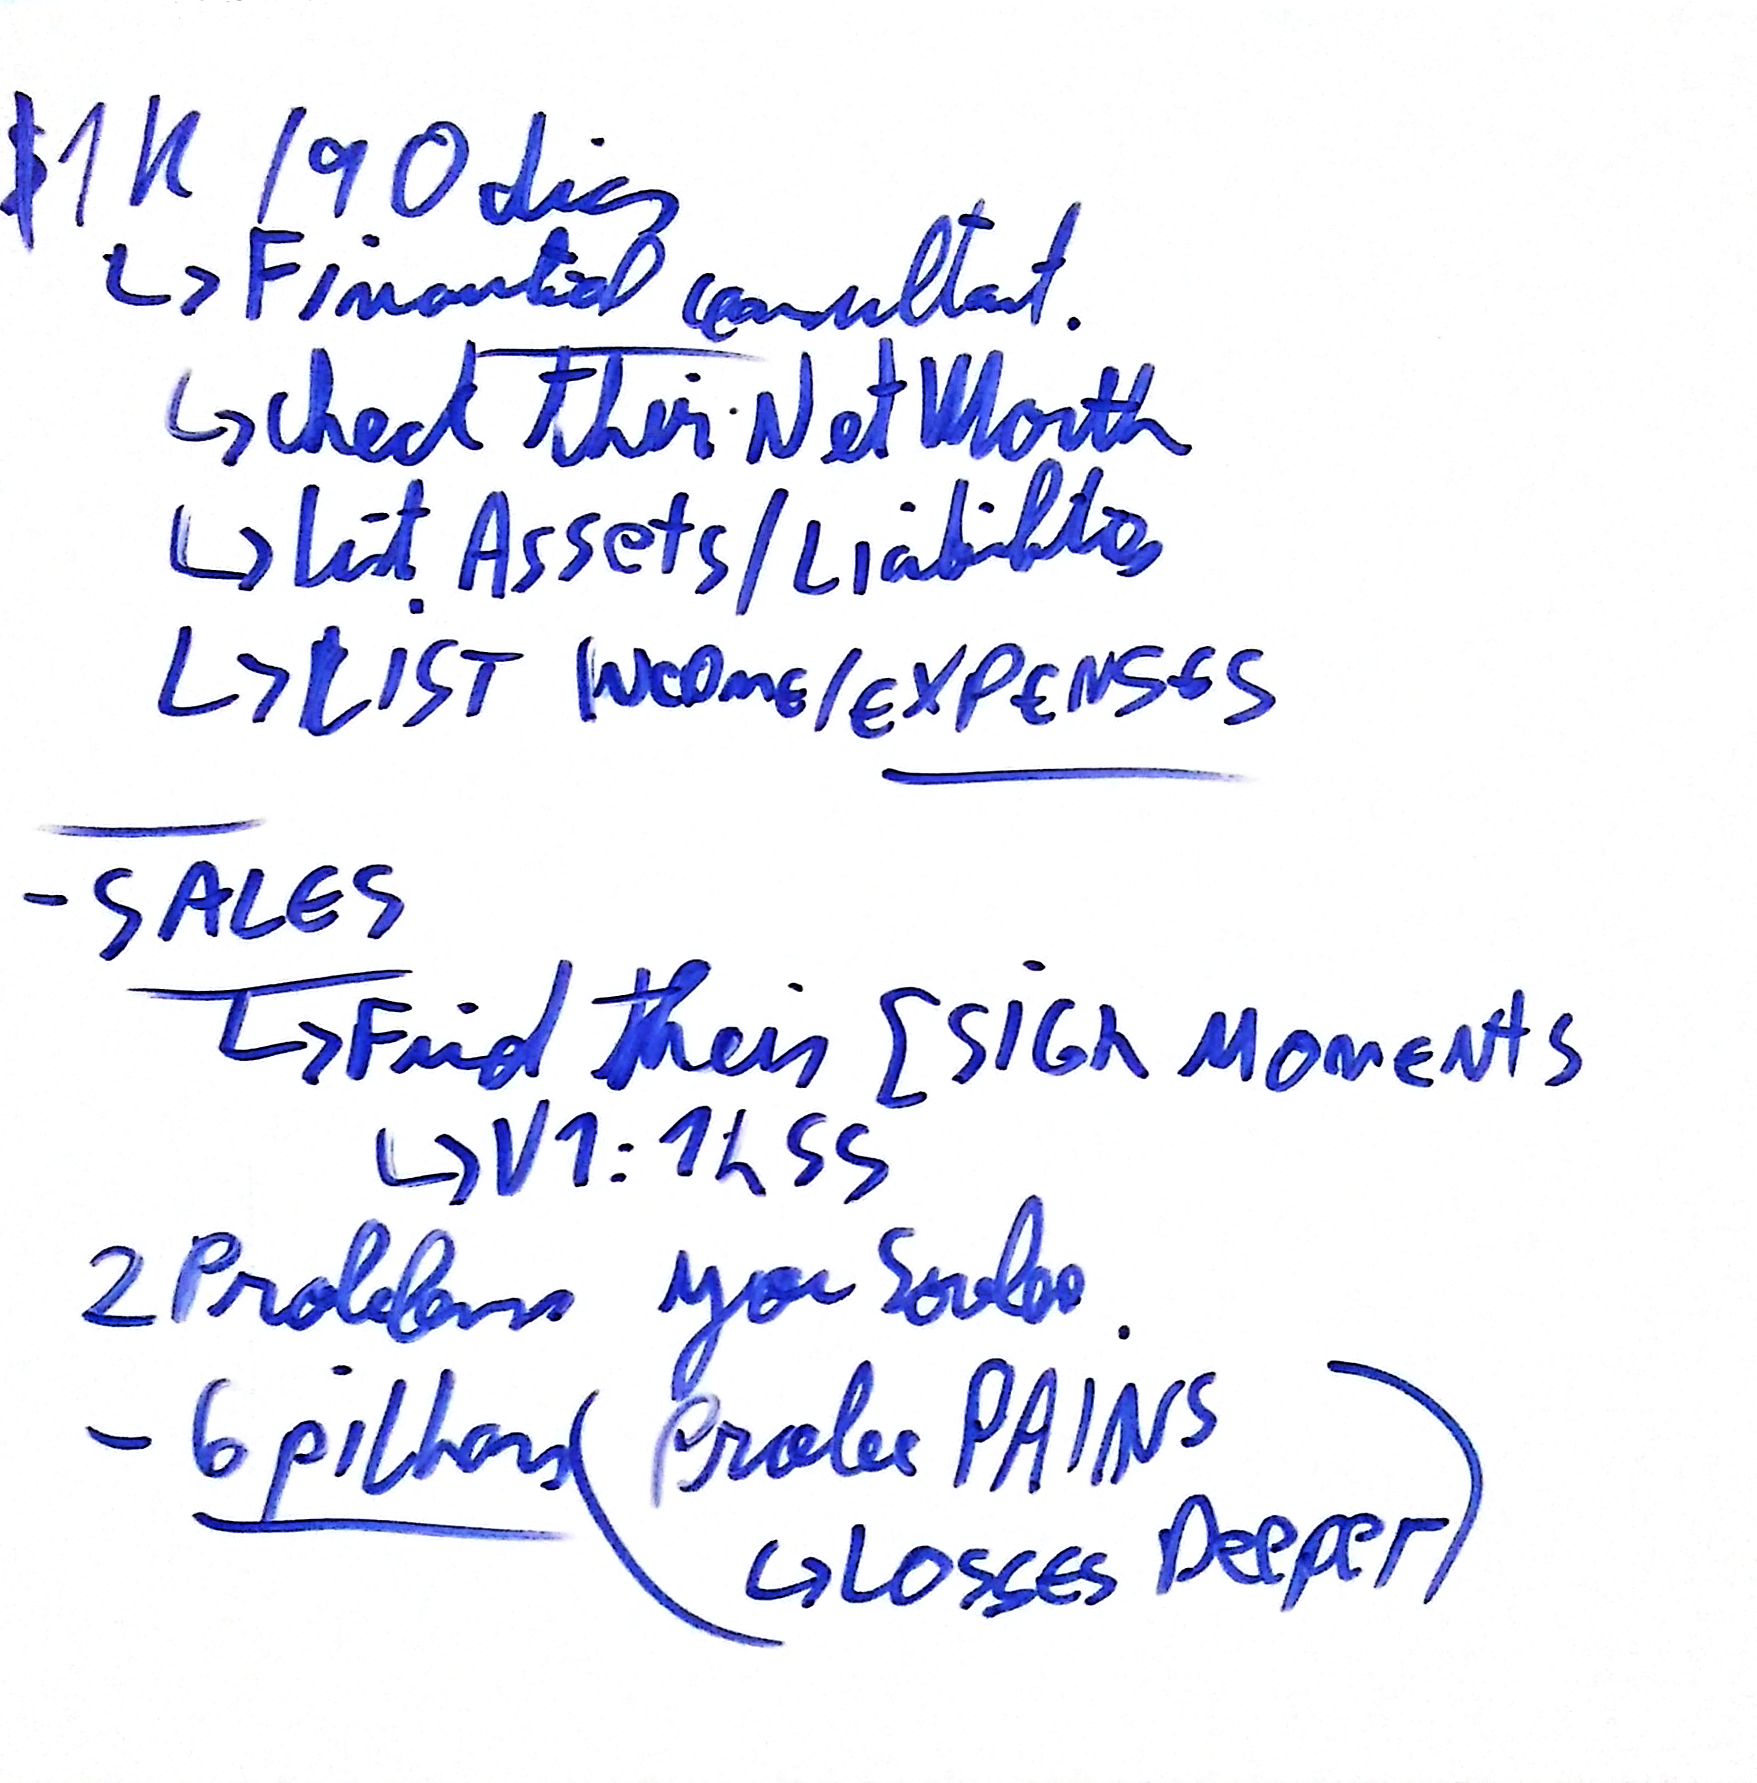 $1K /90 dias
↳ Financial consultant.
↳ check their Net Worth
↳ list Assets/Liabilities
↳ LIST INCOME/EXPENSES
- SALES
↳ Find their [SIGh MOMENTS
↳ V1: 1h SS
2 Problems you Solve.
- 6 pillars (Probe PAINS
↳ LOSSES Deeper)